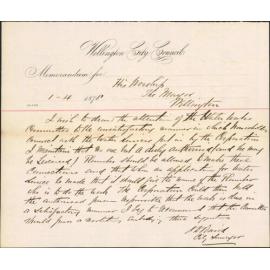 Wellington City Council
Memorandum for
His Worship
1-4 1878
The Mayor
Wellington
I wish to draw the attention of the Water works
Committee to the unsatisfactory manner in which Householders
connect with the Water Service put in by the Corporation
I that no one but a duly authorised (and he may
be licensed) Plumber should be allowed to make these
connections and that when an application for Water
Service is made that I should put the name of the Plumber
who is to do the work. The Corporation could then hold
the authorised person responsible that the work is done in
a satisfactory manner
should pass a resolution, these
City Surveyor